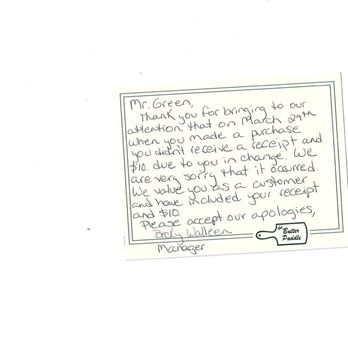 Mr. Green,
Thank you for bringing to our
attention that on March 29th
when you made a purchase
you didn't receive a receipt and
$10. due to you in change. We
are very sorry that it occurred.
We value you as a customer
and have included your receipt
and $10.
Please accept our apologies,
Becky Walleen
Manager
The
Butter
Paddle